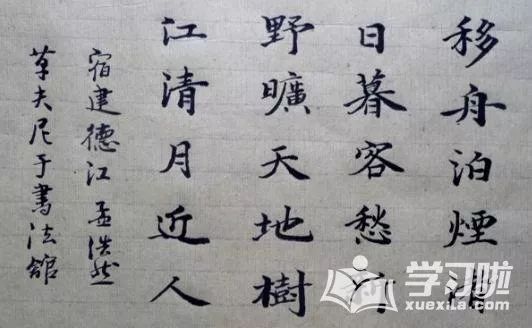 移舟泊煙渚
日暮客愁
野曠天地樹
江清月近人
宿建德江 孟浩然
草夫尼于書法舘
学习啦
xuexila.com